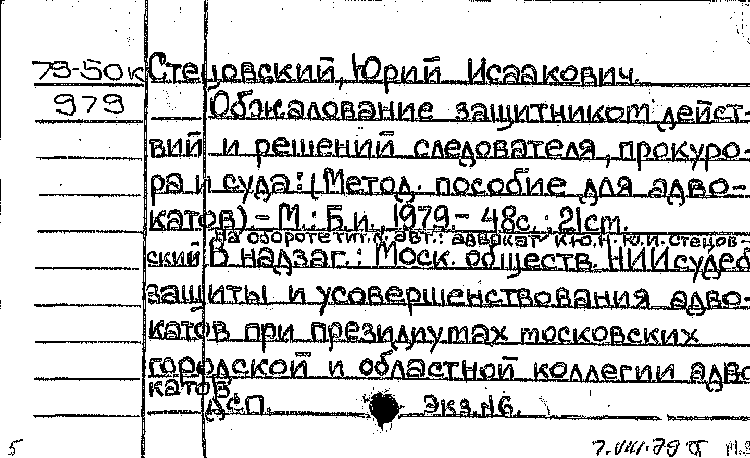 79-50к Стецовский, Юрий Исаакович.
979 Обжалование защитником дейст-
вий и решений следователя, прокуро-
ра и суда: (Метод. пособие для адво-
катов) - М.: Б.и., 1979.- 48с.; 21см.
На обороте тит. л. авт.: адвокат К.Ю.Н. Ю.И. Стецов-
ский В надзаг.: Моск. обществ. НИИ судеб
защиты и усовершенствования адво-
катов при президиумах московских
городской и областной коллегии адво
катов
ДСП. Экз.№6.
5 7.VIII.79